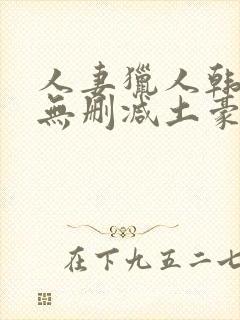 人妻獵人韓
無刪減土豪
在下九五二七